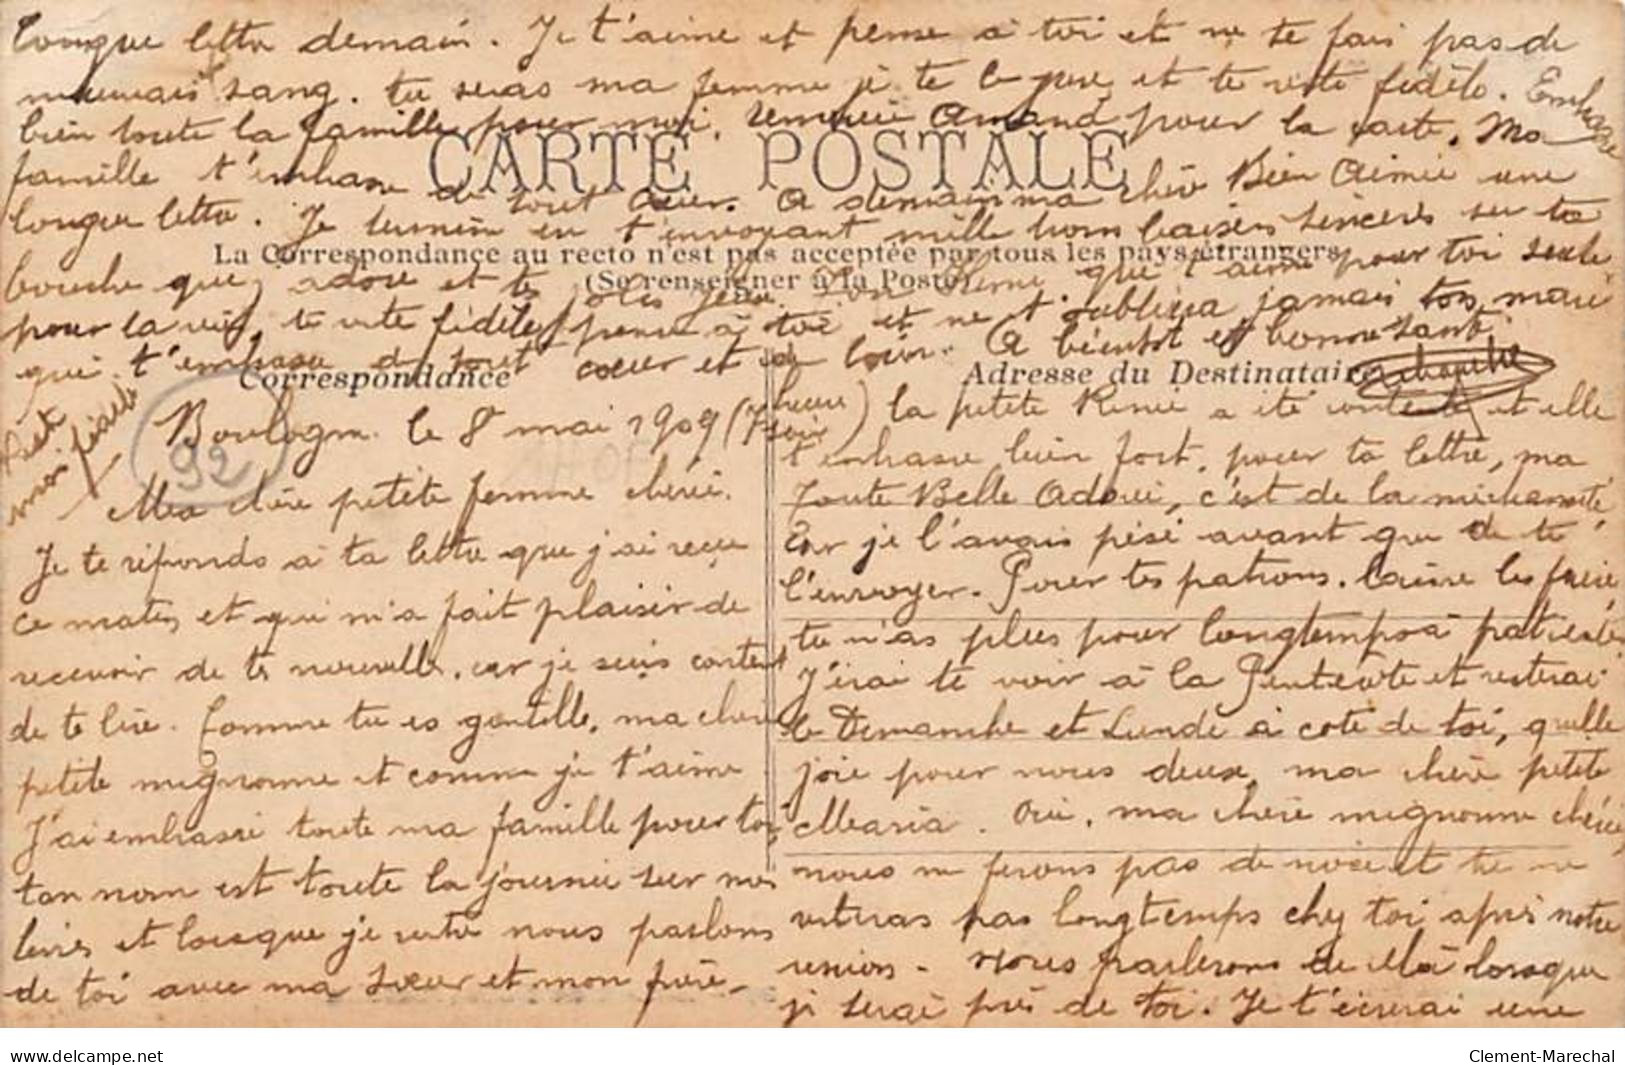 longue lettre demain. Je t'aime et pense à toi et ne te fais pas de
mauvais sang. tu seras ma femme je te le jure et te reste fidèle. Embrasse
bien toute la famille pour moi. remercie Amand pour la carte. Ma
famille t'embrasse de tout cœur. A demain ma chère Bien Aimée une
longue lettre. Je termine en t'envoyant mille bons baisers sincères sur ta
bouche que j'adore et tes jolis yeux. Ton Rémi que t'aime pour toi seule
pour la vie, te reste fidèle, pense à toi et ne t'oubliera jamais ton mari
qui t'embrasse de tout cœur et de loin. A bientôt et bonne santé.
CARTE POSTALE
La Correspondance au recto n'est pas acceptée par tous les pays étrangers
(Se renseigner à la Poste)
Correspondance
Adresse du Destinataire
mon fiancé
92
Boulogne le 8 mai 1909 (7 heure soir)
Ma chère petite femme chérie.
Je te réponds à ta lettre que j'ai reçue
ce matin et qui m'a fait plaisir de
recevoir de tes nouvelles, car je suis content
de te lire. Comme tu es gentille, ma chère
petite mignonne et comme je t'aime
J'ai embrassé toute ma famille pour toi,
ton nom est toute la journée sur nos
lèvres et lorsque je rentre nous parlons
de toi avec ma sœur et mon père.
la petite Renée a été contente et elle
t'embrasse bien fort, pour ta lettre, ma
Toute Belle Adorée, c'est de la méchanceté,
car je l'avais pesé avant que de te
l'envoyer. Pour tes patrons. laisse les faire
tu n'as plus pour longtemps à patienter
J'irai te voir à la Pentecôte et resterai
le Dimanche et Lundi à coté de toi, quelle
joie pour nous deux, ma chère petite
Maria. Oui, ma chère mignonne chérie,
nous ne ferons pas de noce et tu ne
resteras pas longtemps chez toi après notre
union. Nous parlerons de cela lorsque
je serai près de toi. Je t'écrirai une
www.delcampe.net
Clement-Marechal